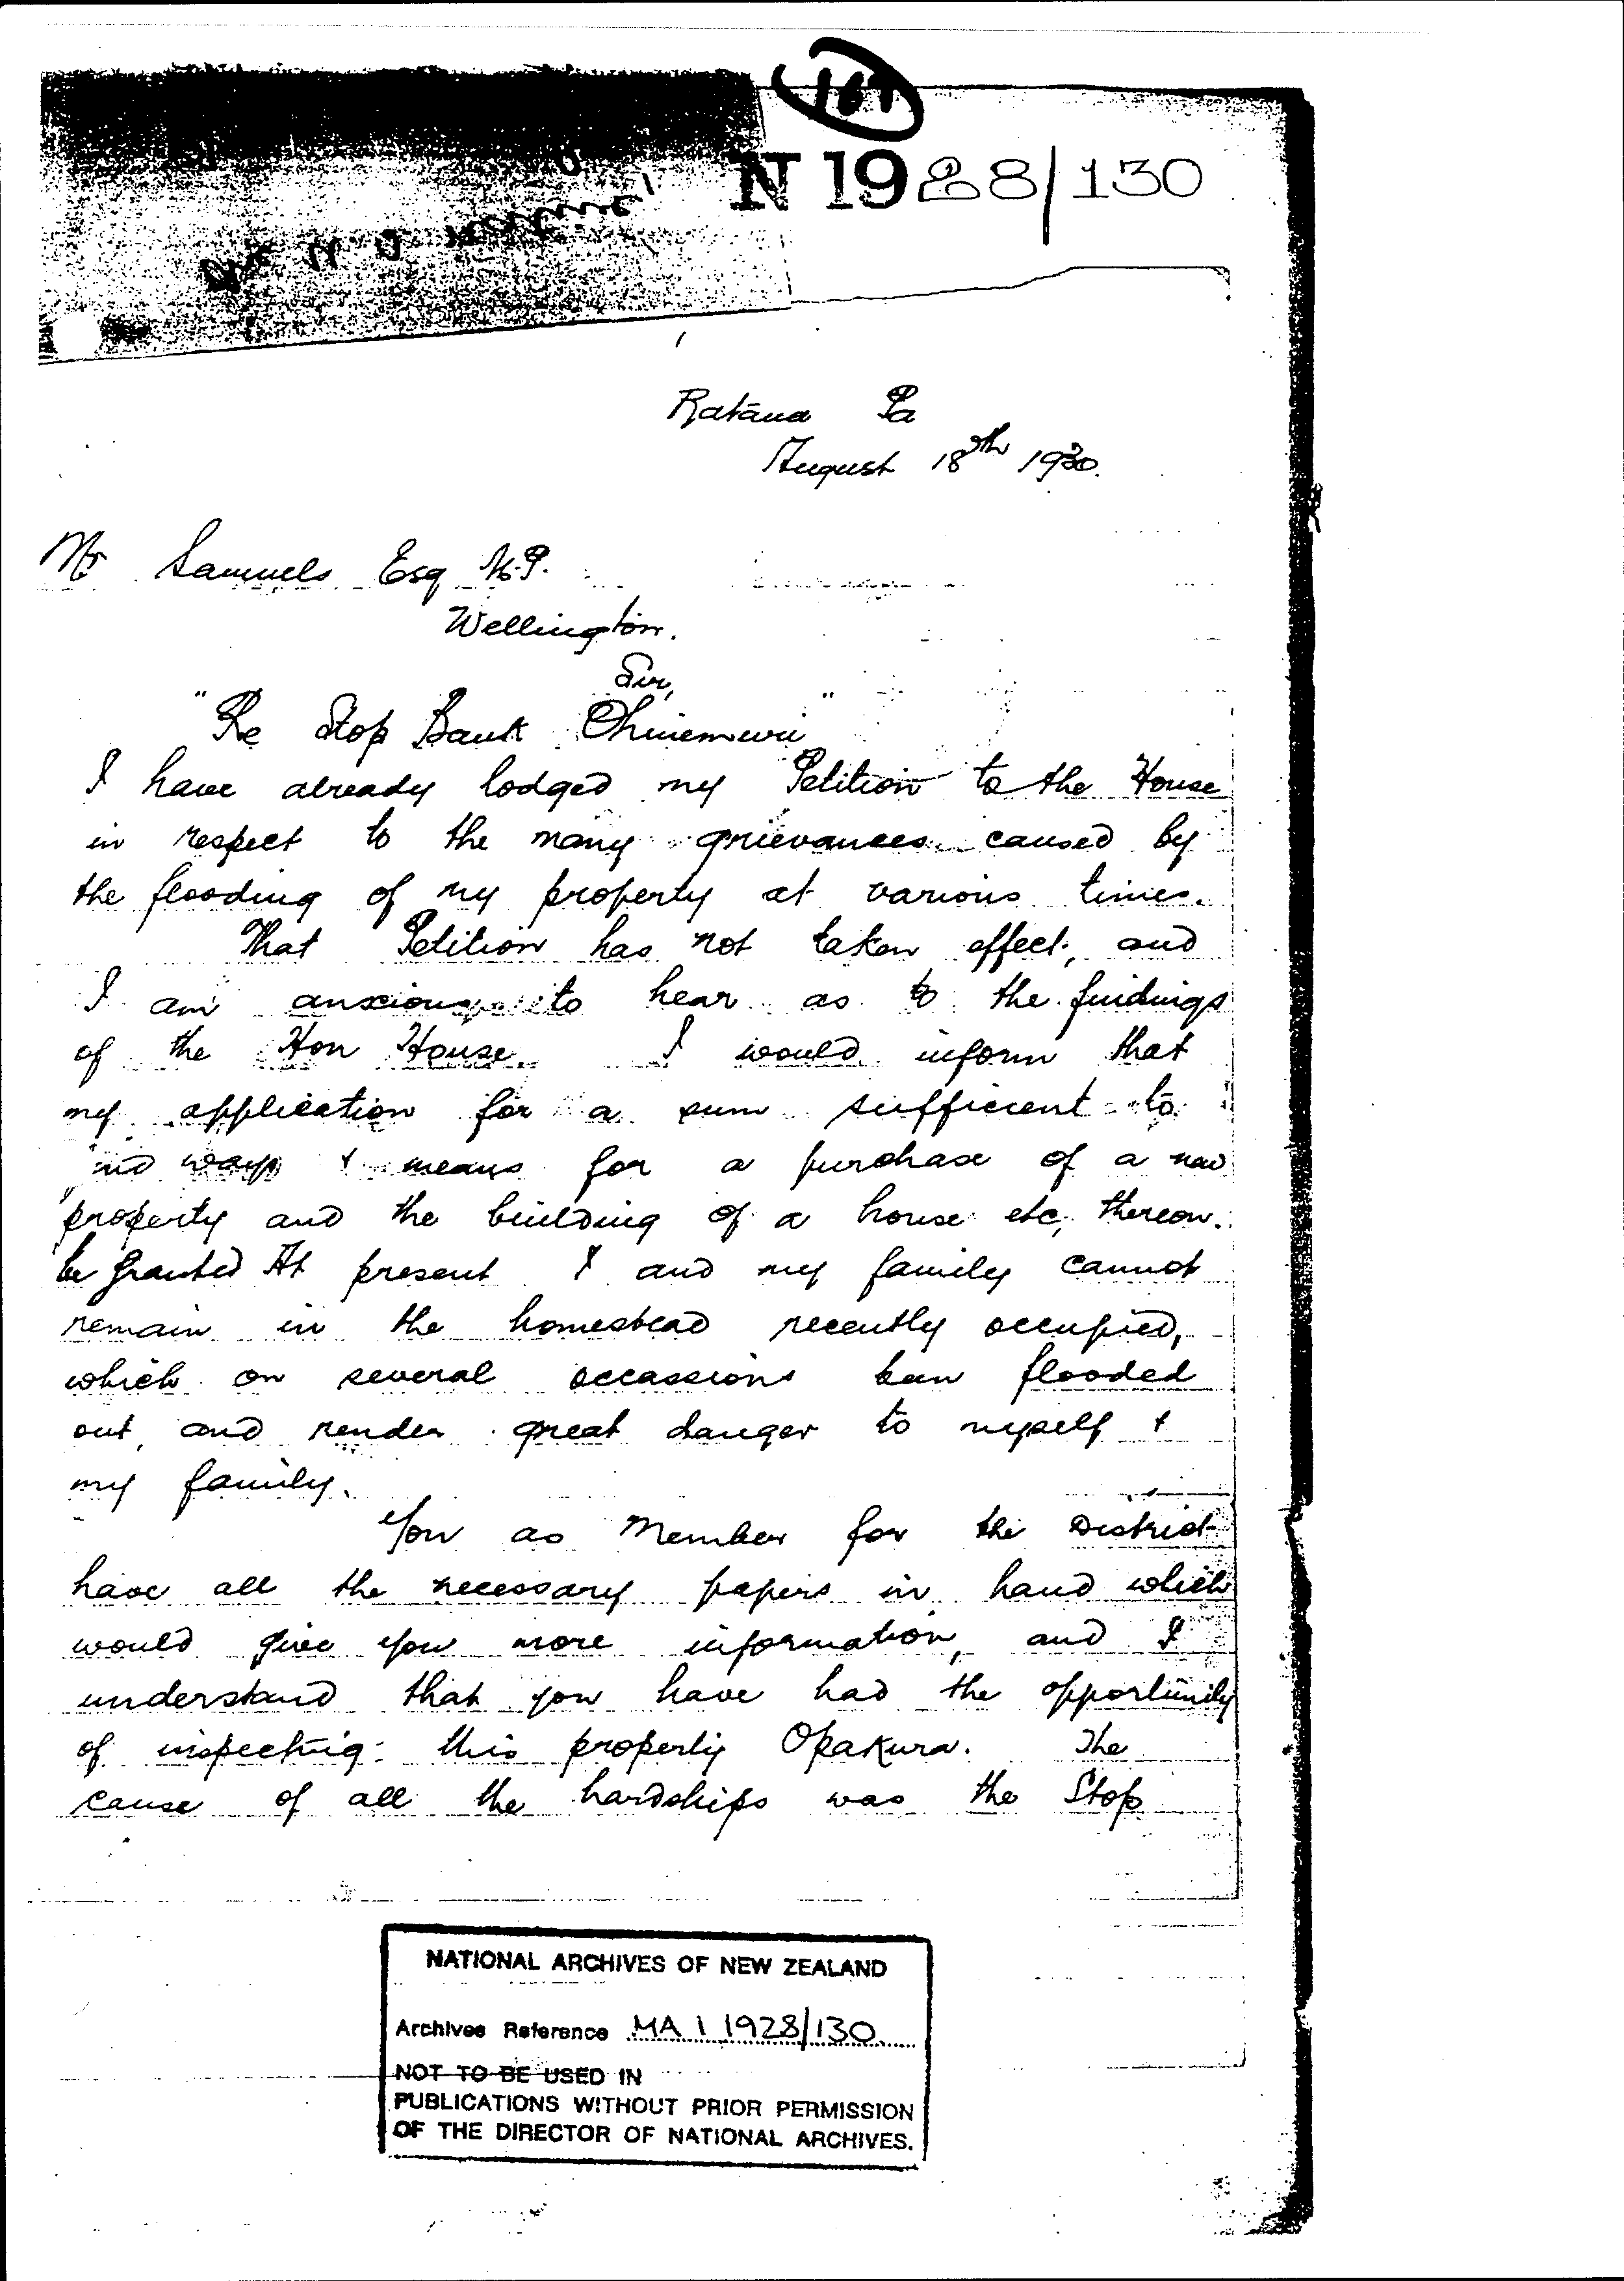 N 1928/130
Ratana Pa
August 18th 1930.
Mr Samuels Esq M.P.
Wellington.
Sir,
"Re Stop Bank Ohinemuri"
I have already lodged my Petition to the House
in respect to the many grievances caused by
the flooding of my property at various times.
That Petition has not taken effect, and
I am anxious to hear as to the findings
of the Hon House. I would inform that
my application for a sum sufficient to
ways & means for a purchase of a new
property and the building of a house etc, thereon.
be granted At present I and my family cannot
remain in the homestead recently occupied,
which on several occassions been flooded
out, and render great danger to myself &
my family.
You as Member for the District
have all the necessary papers in hand which
would give you more information, and I
understand that you have had the opportunity
of inspecting this property Opakura. The
cause of all the hardships was the Stop
NATIONAL ARCHIVES OF NEW ZEALAND
Archives Reference MA 1 1928/130
NOT TO BE USED IN
PUBLICATIONS WITHOUT PRIOR PERMISSION
OF THE DIRECTOR OF NATIONAL ARCHIVES.